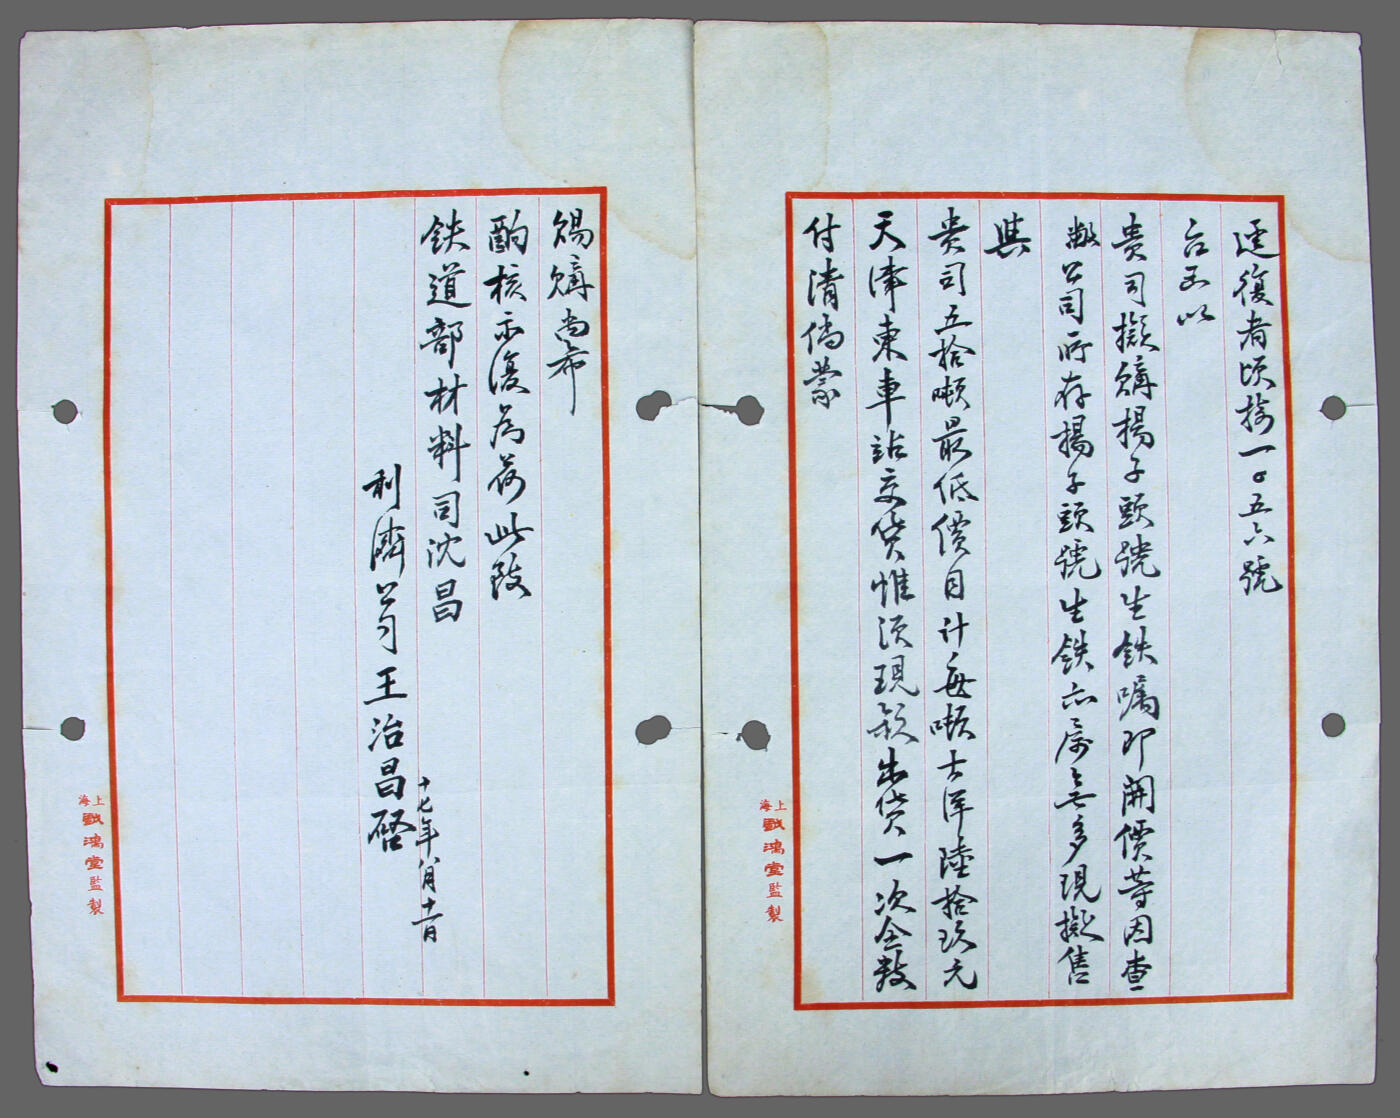 逕復者頃接一〇五六號
台函以
貴司擬購揚子頭號生鉄囑即開價等因查
敝公司所存揚子頭號生鉄亦屬無多現擬售
與
貴司五拾噸最低價目計每噸大洋陸拾玖元
天津東車站交貨惟須現款出貨一次全数
付清倘蒙
上海
戲鴻堂監製
賜購尚希
酌核示復為荷此致
鉄道部材料司沈昌
利濟公司王治昌啓
十七年八月十一日
上海
戲鴻堂監製